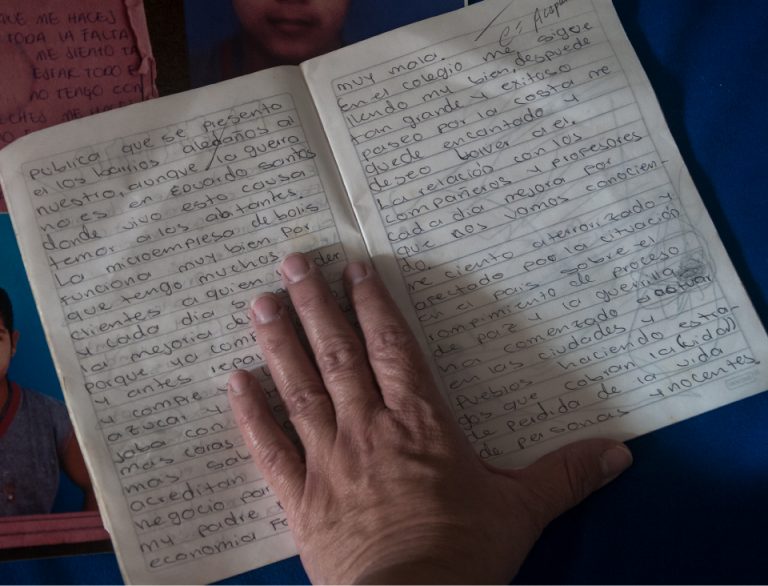 QUE ME HACES
TODA LA FALTA
ME SIENTO TA
ESTAR TODO E
NO TENGO CON
ECHES ME HACE
publica que se presento
en los barrios aledaños al
nuestro, aunque la guerra
no es en Eduardo Santos
donde vivo esta causa
temor a los abitantes.
La microempresa de bolis
funciona muy bien por
que tengo muchos
clientes a quien vender
y cada dia s
la mejoria de
porque ya comp
y antes repa
y compre
azucar y
saba con
mas caras
mas sab
acreditan
negocio par
my padre
economia Fa
muy mala.
En el colegio me sigue
llendo muy bien, despues de
tan grande y exitoso
paseo por la costa me
quede encantado y
deseo bolver a el.
La relación con los
compañeros y profesores
cada dia mejora por
que nos vamos conocien-
do.
me ciento alterrorizado y
afectado por la situación
en el pais sobre el
rompimiento de proceso
de paz y la guerrilla
ha comenzado a actuar
en las ciudades y
pueblos haciendo estra-
gos que cobran la (vida))
de perdida de la vida
de personas ynocentes